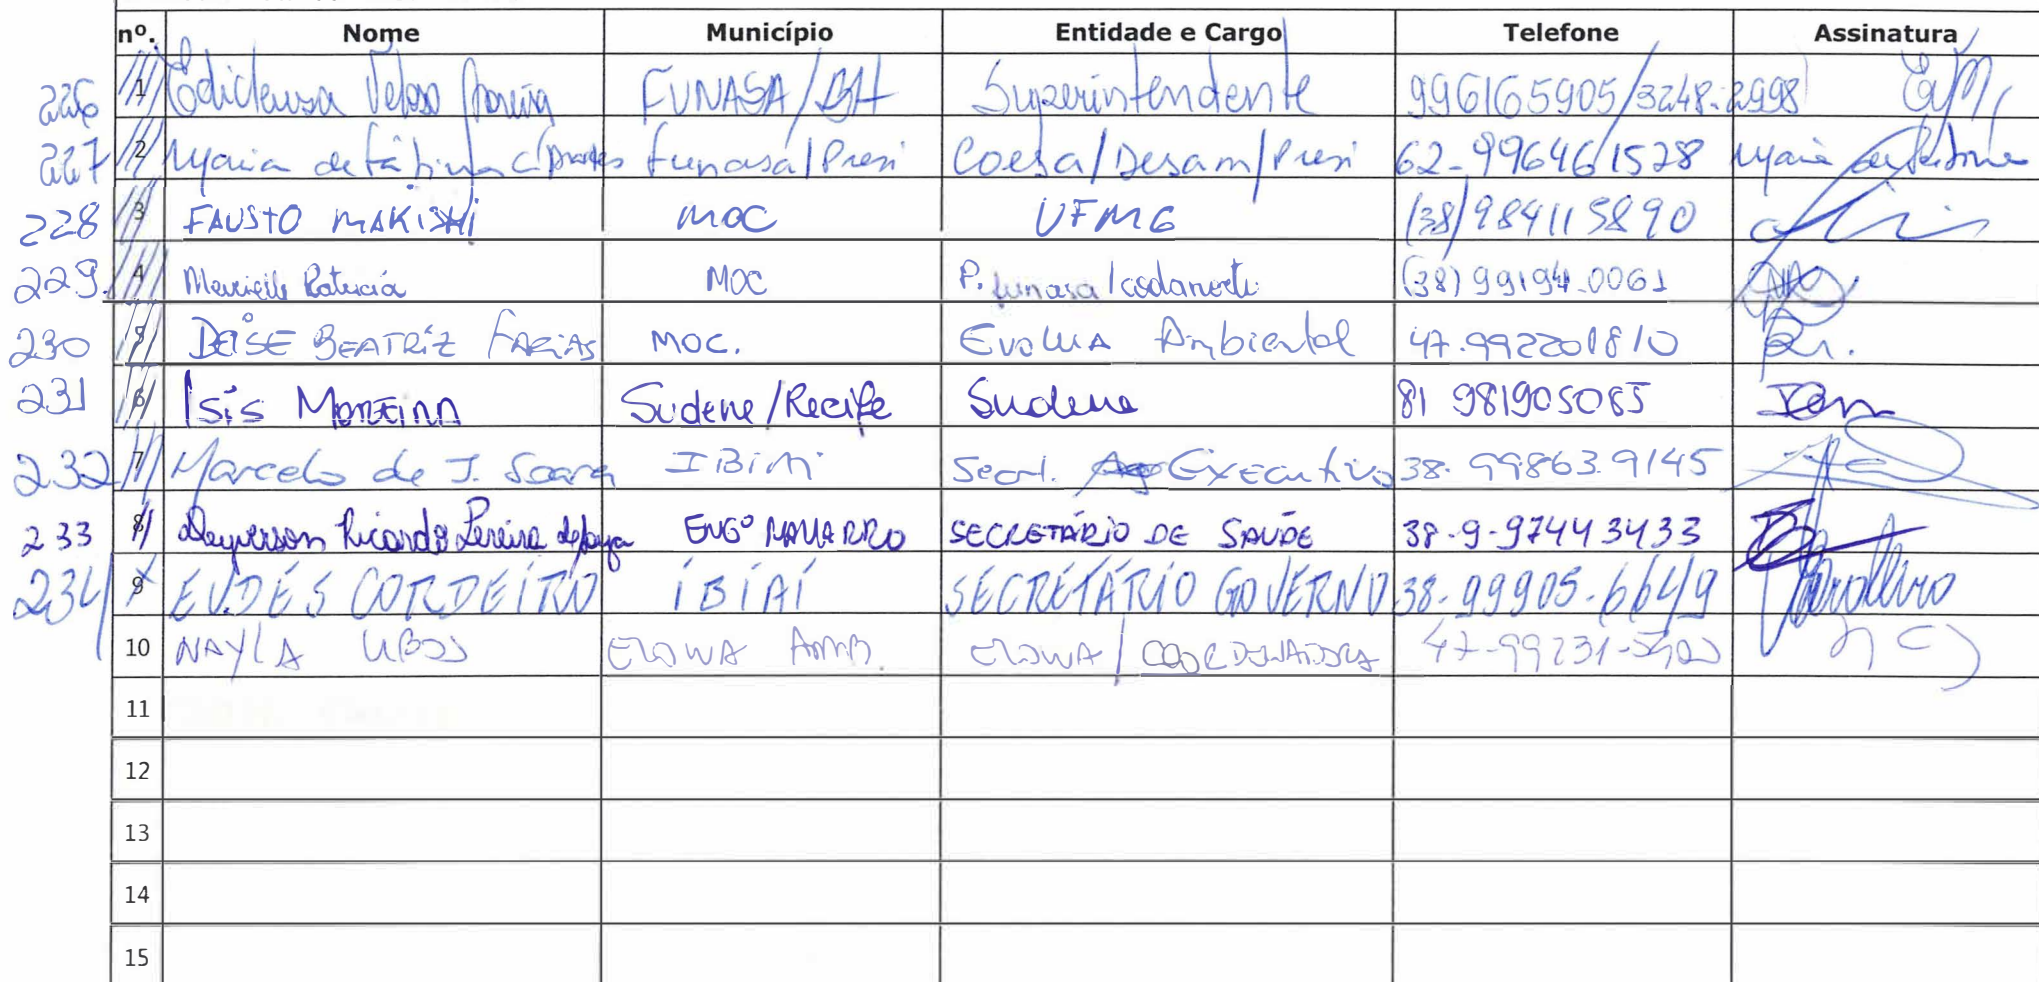 nº. Nome Município Entidade e Cargo Telefone Assinatura
226 1 Edicleusa Veloso Moreira FUNASA/BH Superintendente 996165905/3248-2998
227 2 Maria de Fátima C. Funasa/Presi Coesa/Desam/Presi 62-996461528 Maria
228 3 FAUSTO MAKISHI MOC UFMG (38)984115890
229. 4 Patrícia MOC P. funasa (38) 99194-0061
230 5 DEISE BEATRIZ FARIAS MOC. EVOLUA Ambiental 47.992201810
231 6 ISIS MONTEIRO Sudene/Recife Sudene 81 981905085
232 7 Marcelo de J. Soares IBIAÍ Secret. Executivo 38.99863.9145
233 8 Deyverson Ricardo Pereira ENGº NAVARRO SECRETÁRIO DE SAÚDE 38-9-97443433
234 9 EUDES CORDEIRO IBIAÍ SECRETÁRIO GOVERNO 38-99905-6649
10 NAYLA EVOLUA AMB. EVOLUA/COORDENADORA
11
12
13
14
15